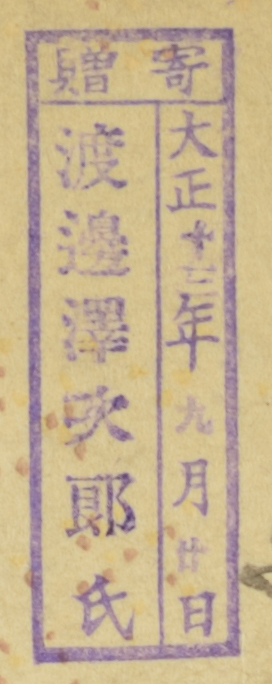 寄贈
大正十三年九月廿日
渡邊澤次郎氏